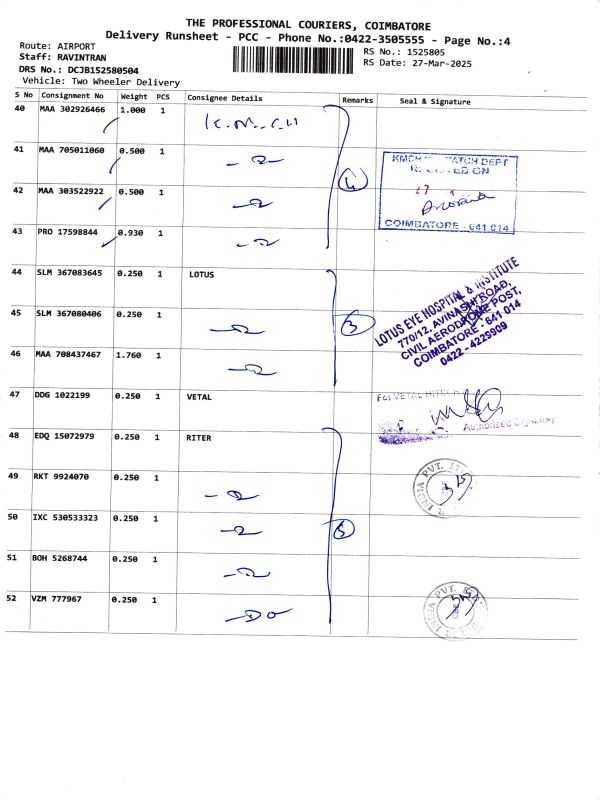 THE PROFESSIONAL COURIERS, COIMBATORE
Delivery Runsheet - PCC - Phone No.:0422-3505555 - Page No.:4
Route: AIRPORT
Staff: RAVINTRAN
DRS No.: DCJB152580504
Vehicle: Two Wheeler Delivery
RS No.: 1525805
RS Date: 27-Mar-2025
S No Consignment No Weight PCS Consignee Details Remarks Seal & Signature
40 MAA 302926466 1.000 1 K.M.C.H
41 MAA 705011060 0.500 1
42 MAA 303522922 0.500 1 4
43 PRO 17598844 0.930 1
COIMBATORE - 641 014
44 SLM 367083645 0.250 1 LOTUS
45 SLM 367080406 0.250 1 3
46 MAA 708437467 1.760 1
LOTUS EYE HOSPITAL & INSTITUTE
770/12, AVINASHI ROAD,
CIVIL AERODROME POST,
COIMBATORE - 641 014
0422 - 4229909
47 DDG 1022199 0.250 1 VETAL
For VETAL
Authorised Signatory
48 EDQ 15072979 0.250 1 RITER
49 RKT 9924070 0.250 1
INDIA PVT.
50 IXC 530533323 0.250 1 5
51 BOH 5268744 0.250 1
52 VZM 777967 0.250 1 -DO
INDIA PVT.